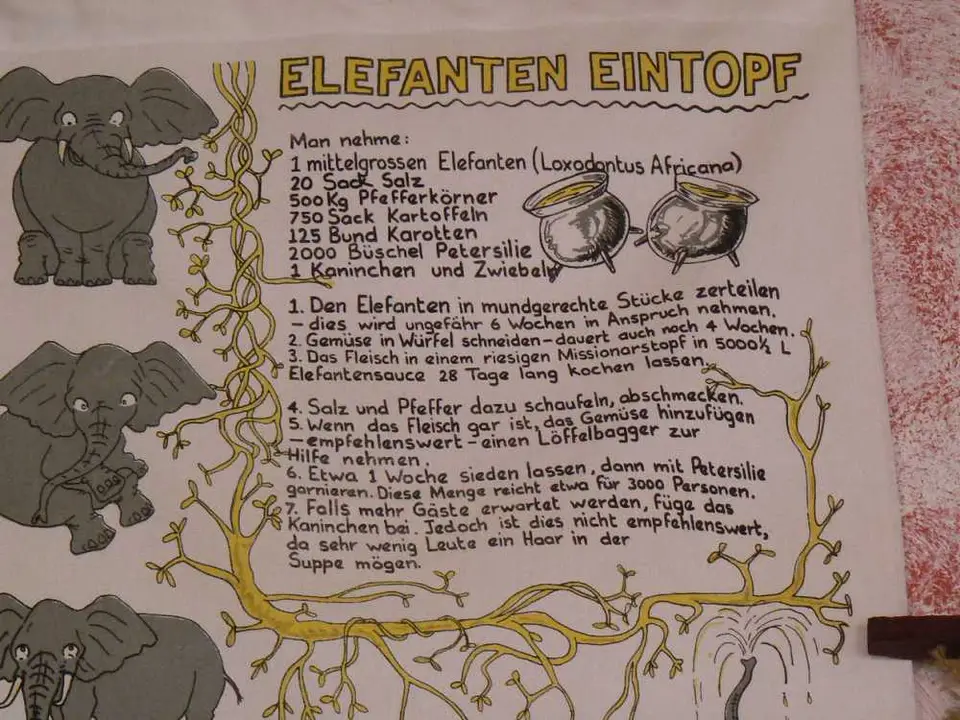 ELEFANTEN EINTOPF
Man nehme:
1 mittelgrossen Elefanten (Loxodontus Africana)
20 Sack Salz
500Kg Pfefferkörner
750 Sack Kartoffeln
125 Bund Karotten
2000 Büschel Petersilie
1 Kaninchen und Zwiebeln
1. Den Elefanten in mundgerechte Stücke zerteilen
– dies wird ungefähr 6 Wochen in Anspruch nehmen.
2. Gemüse in Würfel schneiden – dauert auch noch 4 Wochen.
3. Das Fleisch in einem riesigen Missionarstopf in 5000½ L
Elefantensauce 28 Tage lang kochen lassen.
4. Salz und Pfeffer dazu schaufeln, abschmecken.
5. Wenn das Fleisch gar ist, das Gemüse hinzufügen
– empfehlenswert – einen Löffelbagger zur
Hilfe nehmen.
6. Etwa 1 Woche sieden lassen, dann mit Petersilie
garnieren. Diese Menge reicht etwa für 3000 Personen.
7. Falls mehr Gäste erwartet werden, füge das
Kaninchen bei. Jedoch ist dies nicht empfehlenswert,
da sehr wenig Leute ein Haar in der
Suppe mögen.